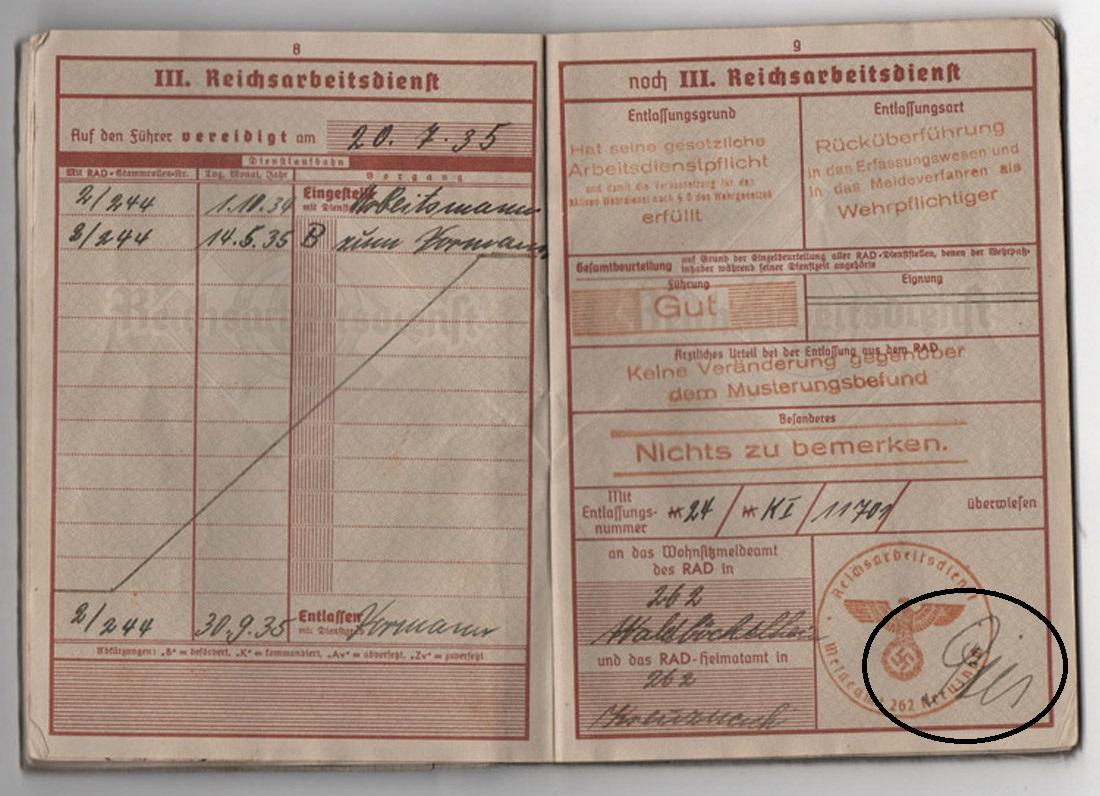 8
III. Reichsarbeitsdienst
Auf den Führer vereidigt am 20. 7. 35
Dienstlaufbahn
Mit RAD-Stammrollen-Nr. Tag, Monat, Jahr Vorgang
2/244 1.10.34 Eingestellt mit Dienstgrad Arbeitsmann
2/244 14.5.35 B zum Vormann
2/244 30.9.35 Entlassen mit Dienstgrad Vormann
Abkürzungen: „B“ = befördert, „K“ = kommandiert, „Av“ = abversetzt, „Zv“ = zuversetzt
9
noch III. Reichsarbeitsdienst
Entlassungsgrund
Hat seine gesetzliche
Arbeitsdienstpflicht
und damit die Voraussetzung für den
aktiven Wehrdienst nach § 8 des Wehrgesetzes
erfüllt
Entlassungsart
Rücküberführung
in das Erfassungswesen und
in das Meldeverfahren als
Wehrpflichtiger
Gesamtbeurteilung auf Grund der Einzelbeurteilung aller RAD-Dienststellen, denen der Wehrpaß-
inhaber während seiner Dienstzeit angehörte
Führung
Gut
Eignung
Ärztliches Urteil bei der Entlassung aus dem RAD
Keine Veränderung gegenüber
dem Musterungsbefund
Besonderes
Nichts zu bemerken.
Mit
Entlassungs-
nummer 24 / XI / 11701 / überwiesen
an das Wohnsitzmeldeamt
des RAD in
262
und das RAD-Heimatamt in
262
Kreuznach
Reichsarbeitsdienst
Meldeamt 262 Kreuznach